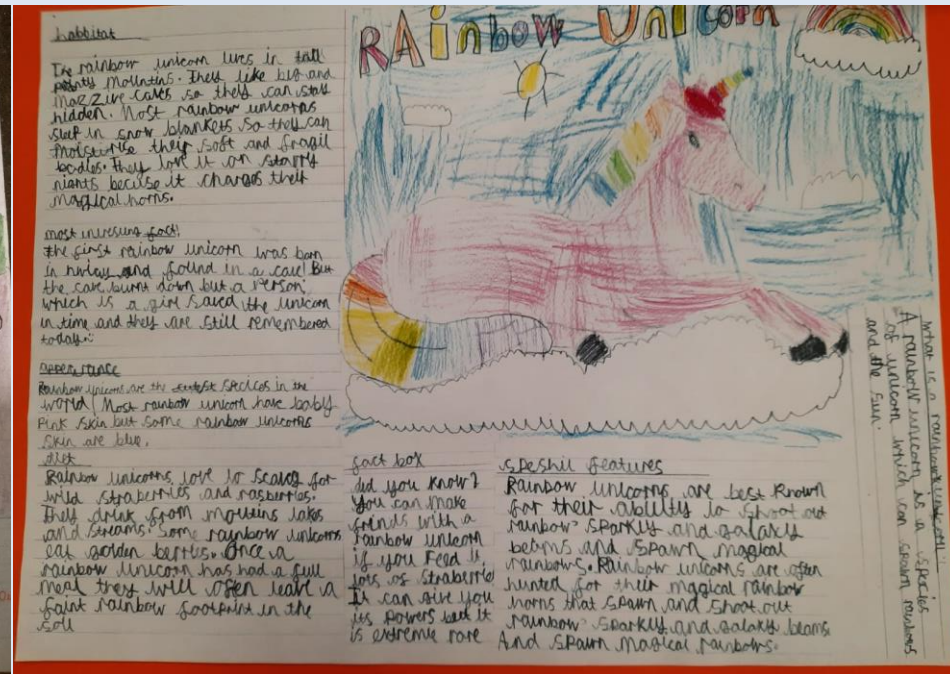 RAinbow Unicorn
habbitat
The rainbow unicorn lives in tall
pointy mountins. They like big and
mazzive caves so they can stay
hidden. Most rainbow unicorns
sleep in snow blankets so they can
moisturise their soft and fragil
bodies. They love it on starry
nights becuse it charges their
magical horns.
most intresting fact!
the first rainbow unicorn was born
in and found in a cave! But
the cave burnt down but a person
which is a girl saved the unicorn
in time and they are still remembered
today.
Appearance
Rainbow unicorns are the cutest species in the
world! Most rainbow unicorn have baby
pink skin but some rainbow unicorns
skin are blue.
diet
Rainbow unicorns love to scavage for
wild straberries and rasberries.
They drink from moutins lakes
and streams. Some rainbow unicorns
eat golden berries. Once a
rainbow unicorn has had a full
meal they will often leave a
faint rainbow footprint in the
soil
fact box
did you know?
you can make
frinds with a
rainbow unicorn
if you feed it
lots of straberries
It can give you
its powers but it
is extreme rare
speshil features
Rainbow unicorns are best known
for their ability to shoot out
rainbow sparkly and galaxy
beams and spawn magical
rainbows. Rainbow unicorns are often
hunted for their magical rainbow
horns that spawn and shoot out
rainbow sparkly and galaxy beams
And spawn magical rainbows.
what is a rainbow unicorn
A rainbow unicorn is a species
of unicorn which can spawn rainbows
and the sun.